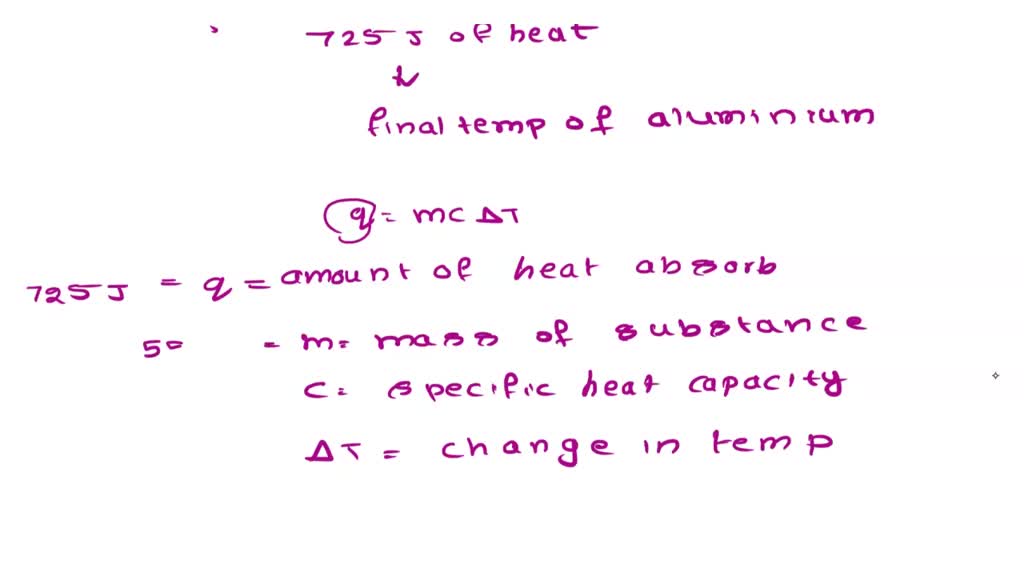 725 J of heat
final temp of aluminium
q = mc ΔT
725 J = q = amount of heat absorb
50 = m = mass of substance
c = specific heat capacity
ΔT = change in temp